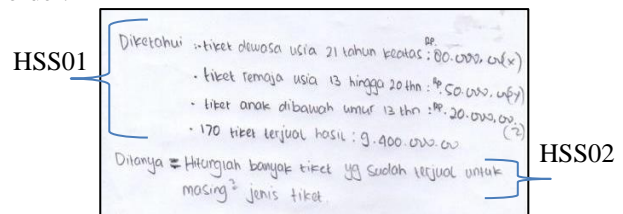 HSS01
Diketahui : • tiket dewasa usia 21 tahun keatas : Rp. 80.000,00 (x)
• tiket remaja usia 13 hingga 20 thn : Rp. 50.000,00 (y)
• tiket anak dibawah umur 13 thn : Rp. 20.000,00. (z)
• 170 tiket terjual hasil : 9.400.000.00
Ditanya = Hitunglah banyak tiket yg sudah terjual untuk
masing² jenis tiket.
HSS02